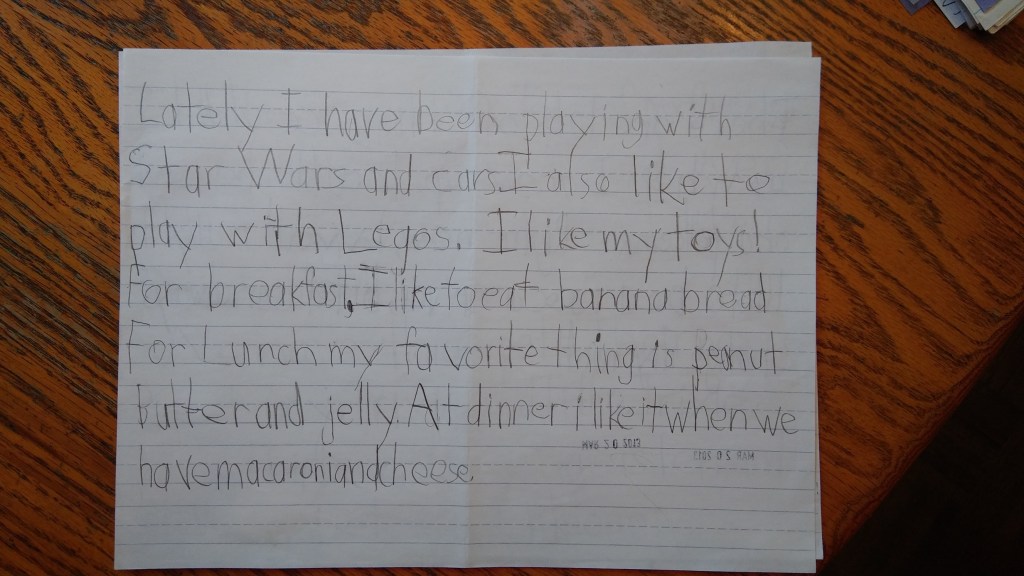 Lately I have been playing with
Star Wars and cars. I also like to
play with Legos. I like my toys!
For breakfast, I like to eat banana bread
For Lunch my favorite thing is peanut
butter and jelly. At dinner i like it when we
have macaroni and cheese.